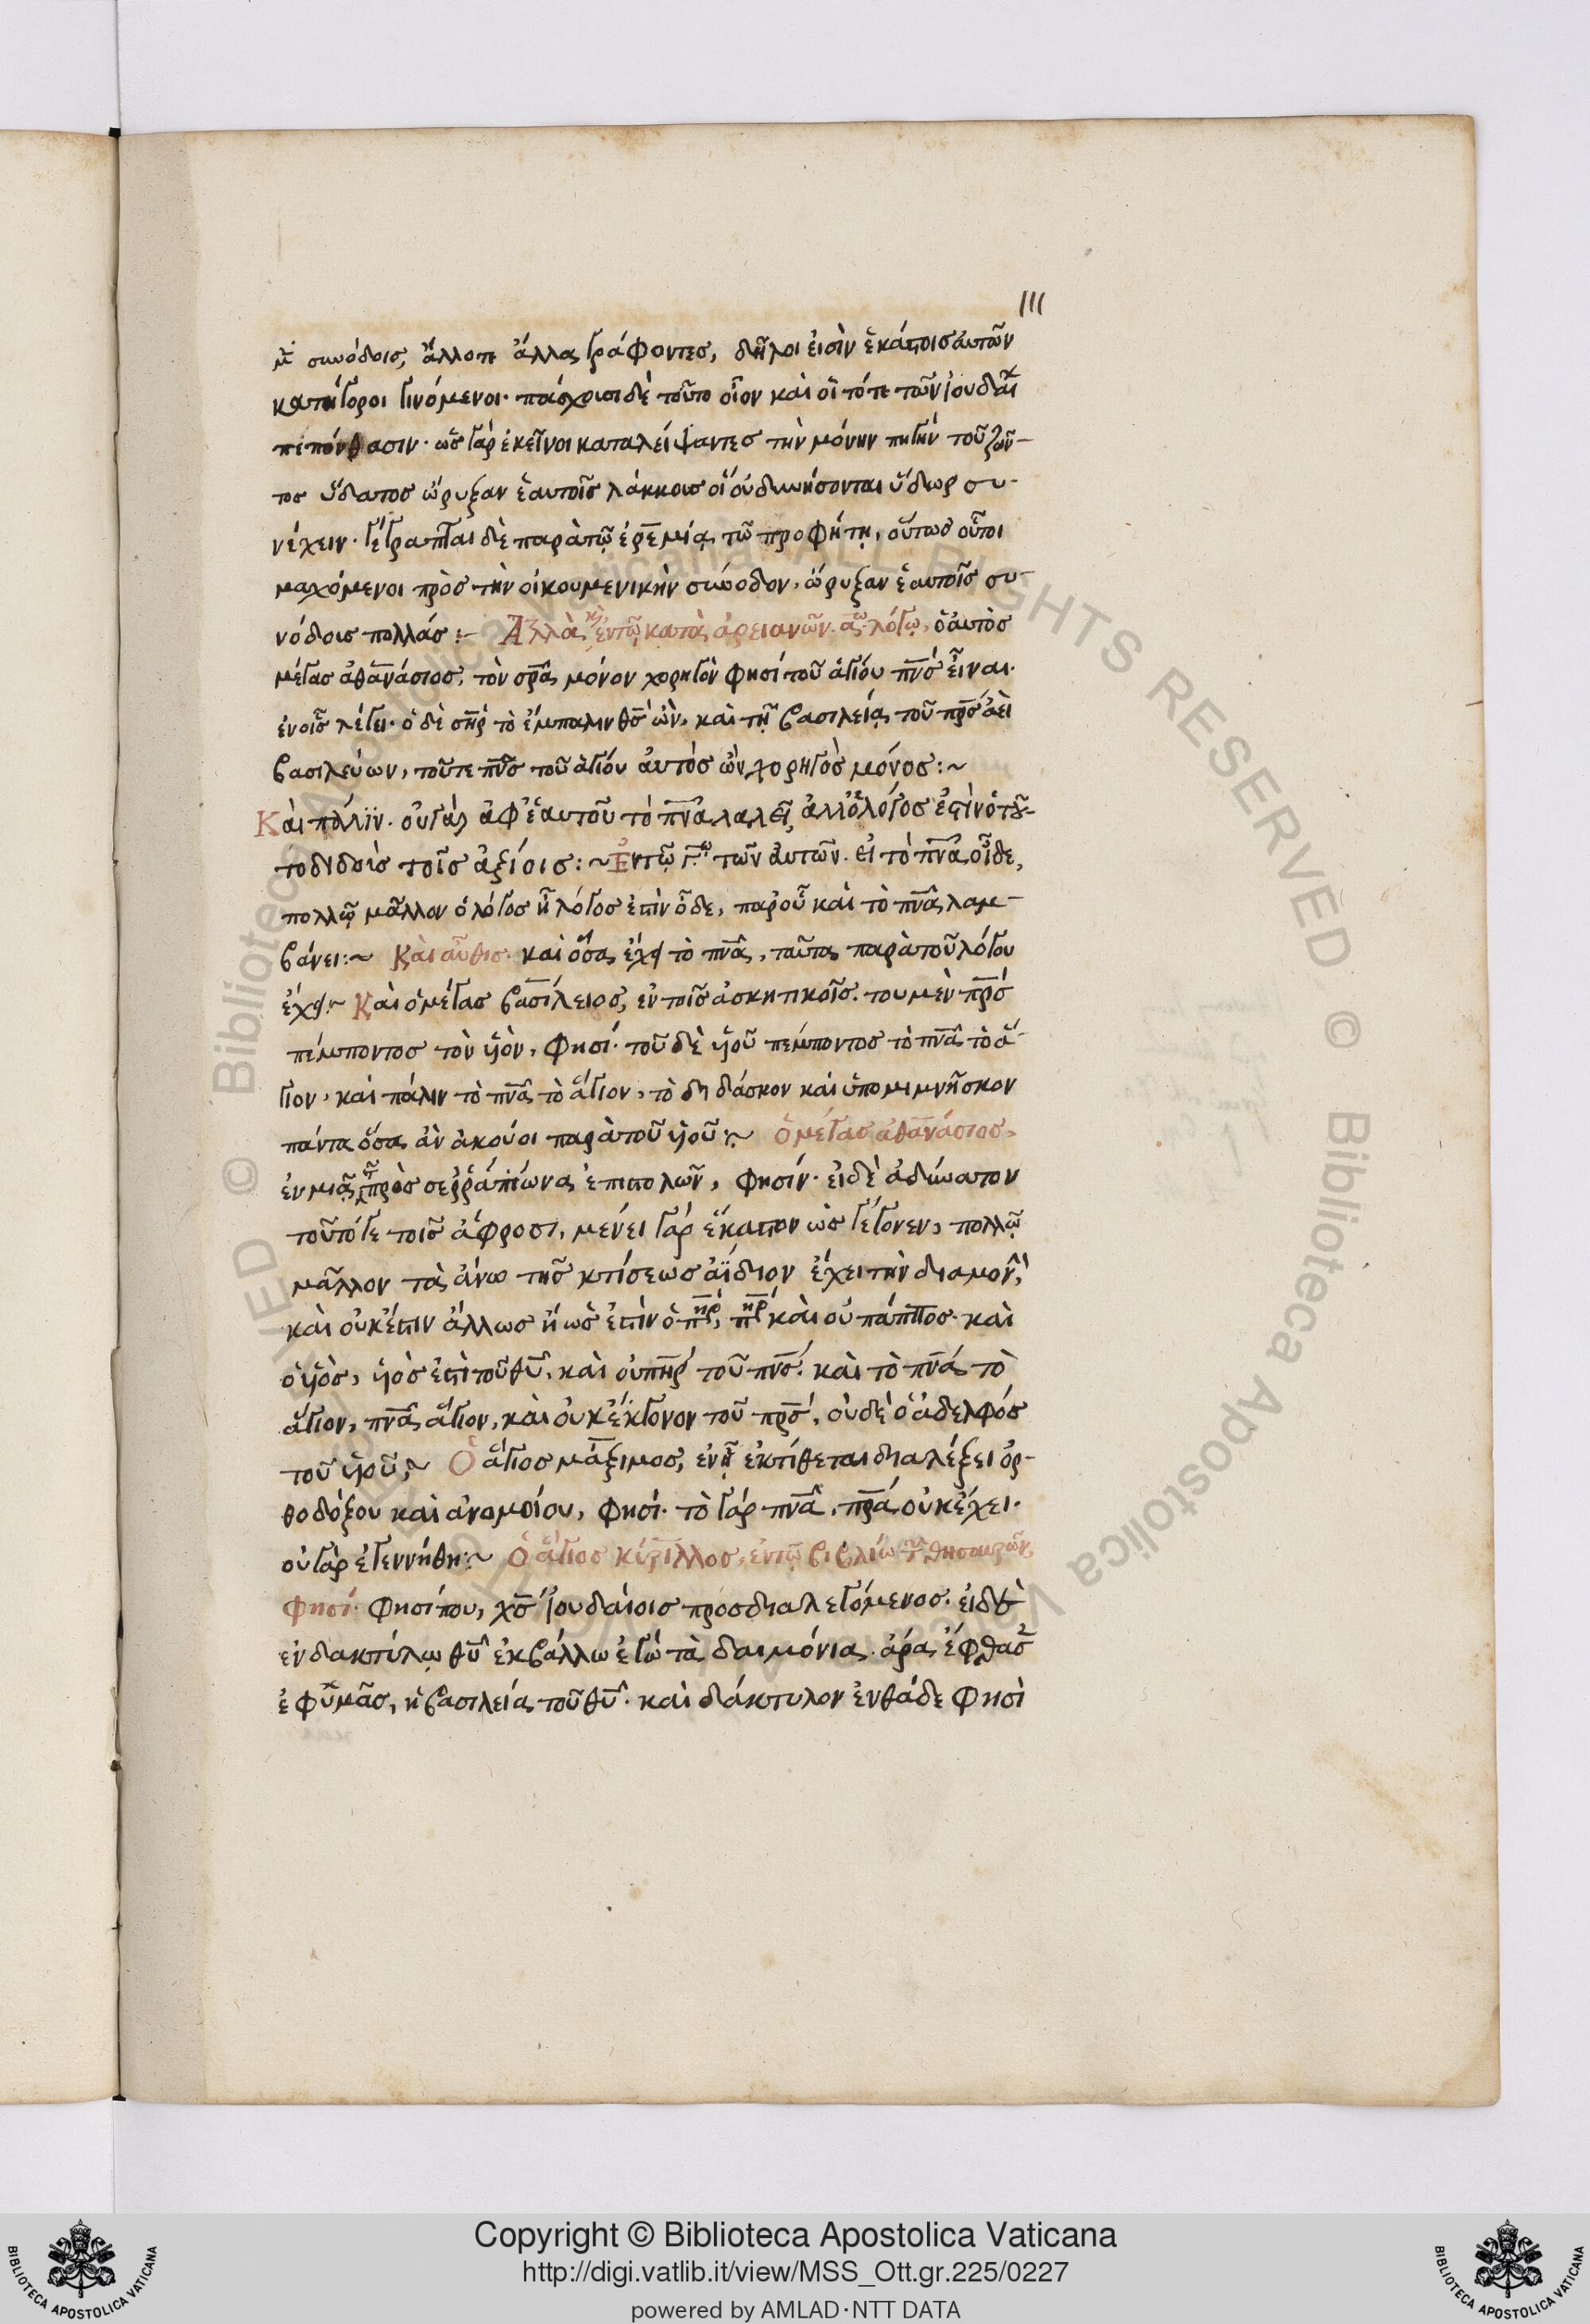 111
μ̅ συνόδοις, ἄλλοτε ἄλλα γράφοντες, δῆλοι εἰσὶν ἑκάστοις αυτῶν
κατήγοροι γινόμενοι· πάσχουσι δὲ τοῦτο οἷον καὶ οἱ τότε τῶν ἰουδαί
πεπόνθασιν· ὡς γὰρ ἐκεῖνοι καταλείψαντες τὴν μόνην πηγὴν τοῦ ζῶν-
τος ὕδατος ὤρυξαν ἑαυτοῖς λάκκους οἳ οὐ δυνήσονται ὕδωρ συ-
νέχειν· γέγραπται δὲ παρὰ τῷ ἱερεμίᾳ τῶ προφήτῃ, οὕτως οὗτοι
μαχόμενοι πρὸς τὴν οἰκουμενικὴν σύνοδον, ὤρυξαν ἑαυτοῖς συ-
νόδους πολλάς:- Ἀλλὰ κὶ ἐν τῷ κατὰ ἀρειανῶν α̅ω λόγῳ, ὁ αὐτὸς
μέγας ἀθανάσιος, τὸν σρ̅α μόνον χορηγὸν φησί τοῦ ἁγίου πν̅ς εἶναι·
ἐν οἷς λέγει· ὁ δὲ ση̅ρ τὸ ἔμπαλιν θ̅ς ὢν, καὶ τῇ βασιλείᾳ τοῦ πρ̅ς ἀεὶ
βασιλεύων, τοῦτε πν̅ς τοῦ ἁγίου αὐτὸς ὢν χορηγὸς μόνος:~
Καὶ πάλιν· οὐ γὰρ ἀφ' ἑαυτοῦ τὸ πν̅α λαλεῖ, ἀλλ' ὁ λόγος ἐστὶν ὁ τοῦ-
το διδοὺς τοῖς ἀξίοις:~ Ἐν τῷ γ̅ω τῶν ἀυτῶν· εἰ τὸ πν̅α οἶδε,
πολλῷ μᾶλλον ὁ λόγος ἧ λόγος ἐστὶν οἶδε, παρ' οὗ καὶ τὸ πν̅α λαμ-
βάνει:~ Καὶ αὖθις· καὶ ὅσα ἔχει τὸ πν̅α, ταῦτα παρὰ τοῦ λόγου
ἔχει:~ Καὶ ὁ μέγας βασίλειος, ἐν τοῖς ἀσκητικοῖς· του μὲν πρ̅ς
πέμποντος τὸν υἱὸν, φησί· τοῦ δὲ υἱοῦ πέμποντος τὸ πν̅α τὸ ἅ-
γιον, καὶ πάλιν τὸ πν̅α τὸ ἅγιον, τὸ διδάσκον καὶ ὑπομιμνῆσκον
πάντα ὅσα ἀν ἀκούοι παρὰ τοῦ υἱοῦ:~ ὁ μέγας ἀθανάσιος,
ἐν μιᾷ τῶν πρὸς σερράπίωνα ἐπιστολῶν, φησίν· εἰ δὲ ἀδύνατον
τοῦτό γε τοῖς ἄφροσι, μένει γὰρ ἕκαστον ὡς γέγονεν, πολλῷ
μᾶλλον τὰ ἄνω τῆς κτίσεως ἀΐδιον ἔχει τὴν διαμονὴ,
καὶ οὐκ ἔστιν ἄλλως ἢ ὡς ἐστὶν ὁ π̅η̅ρ, π̅η̅ρ καὶ οὐ πάππος· καὶ
ὁ υἱὸς, υἱὸς ἐστὶ τοῦ θυ̅, καὶ οὐ πη̅ρ τοῦ πν̅ς· καὶ τὸ πν̅α τὸ
ἅγιον, πν̅α ἅγιον, καὶ οὐκ ἔκγονον τοῦ πρ̅ς, οὐδὲ ὁ ἀδελφός
τοῦ υἱοῦ:~ Ὁ ἅγιος μάξιμος, ἐν ᾗ ἐκτίθεται διαλέξει ὀρ-
θοδόξου καὶ ἀνομοίου, φησί· τὸ γὰρ πν̅α, πρ̅α οὐκ ἔχει·
οὐ γὰρ ἐγεννήθη:~ Ὁ ἅγιος κύριλλος, ἐν τῷ βιβλίω τῶν θησαυρῶν
φησί· φησί που, χ̅ς ἰουδαίοις προσδιαλεγόμενος· εἰ δὲ
ἐν δακτύλῳ θυ̅ ἐκβάλλω ἐγὼ τὰ δαιμόνια· ἄρα ἔφθασ
ἐφ' ὑμᾶς, ἡ βασιλεία τοῦ θυ̅· καὶ δάκτυλον ἐνθάδε φησὶ
Copyright © Biblioteca Apostolica Vaticana
http://digi.vatlib.it/view/MSS_Ott.gr.225/0227
powered by AMLAD·NTT DATA